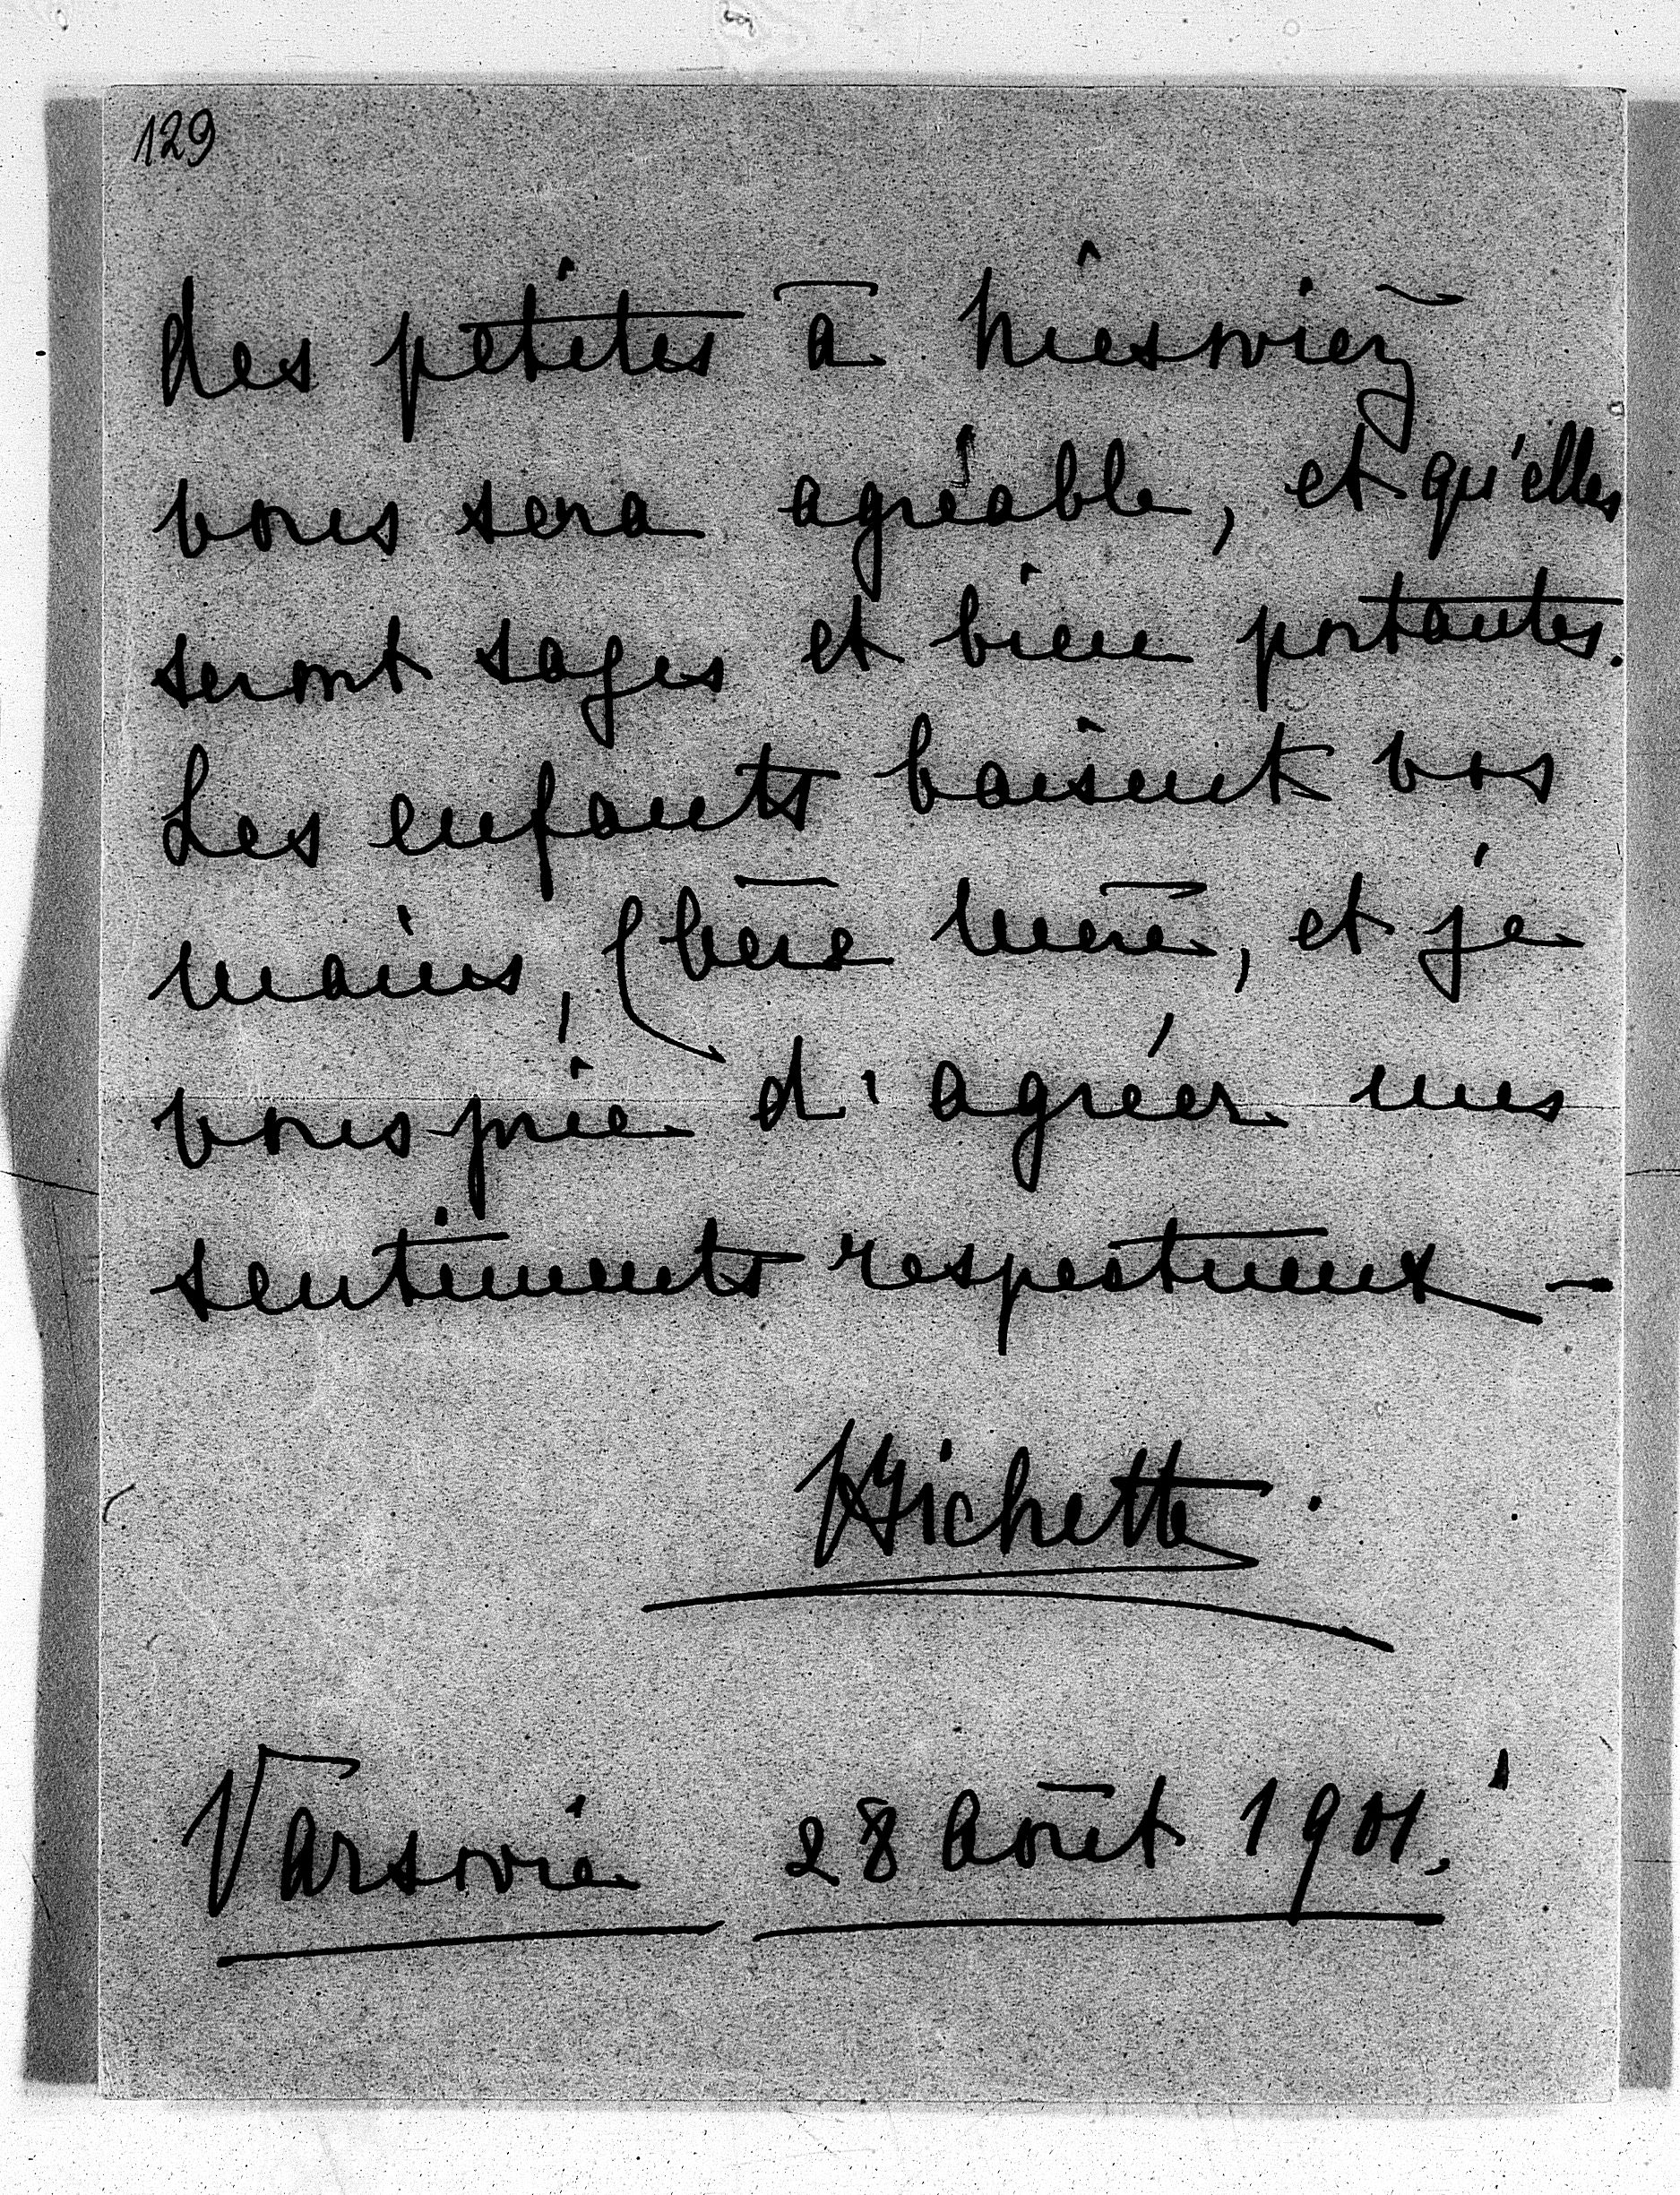 129
des petites à Nieswież
vous sera agréable, et qu'elles
seront sages et bien portantes.
Les enfants baisent vos
mains, Chère Mère, et je
vous prie d'agréer mes
sentiments respectueux —
Bichette.
Varsovie 28 Août 1901.